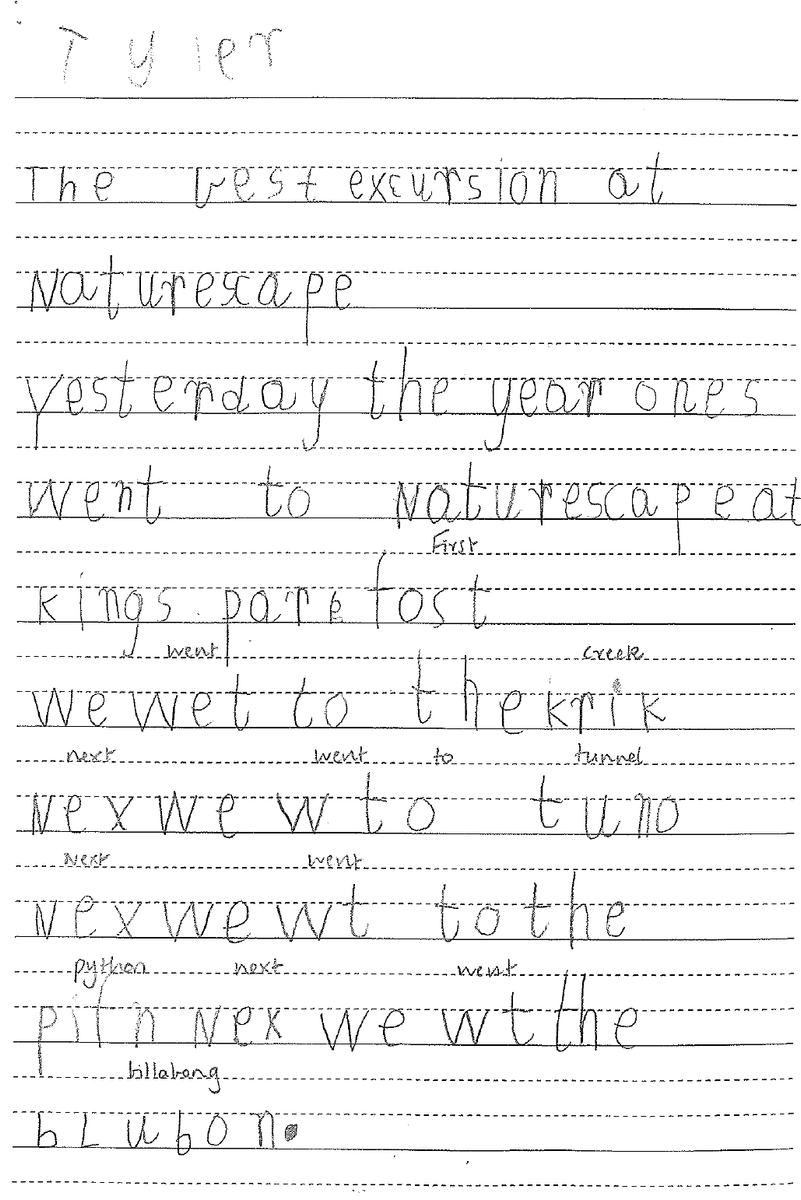 Tyler
The best excursion at
Naturescape
yesterday the year ones
went to Naturescape at
First
kings park fost
went creek
we wet to the krik
next went to tunnel
Nex we w to tuno
Next went
Nex we wt to the
python next went
pitn Nex we wt the
billabong
bLubon.